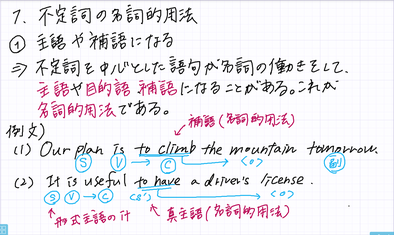 7. 不定詞の名詞的用法
① 主語や補語になる
⇒ 不定詞を中心とした語句が名詞の働きをして、
主語や目的語 補語になることがある。これが
名詞的用法である。
例文)
補語(名詞的用法)
(1) Our plan is to climb the mountain tomorrow.
S V C <o> 副
(2) It is useful to have a driver's license.
S V C (s') <o>
形式主語の it 真主語(名詞的用法)